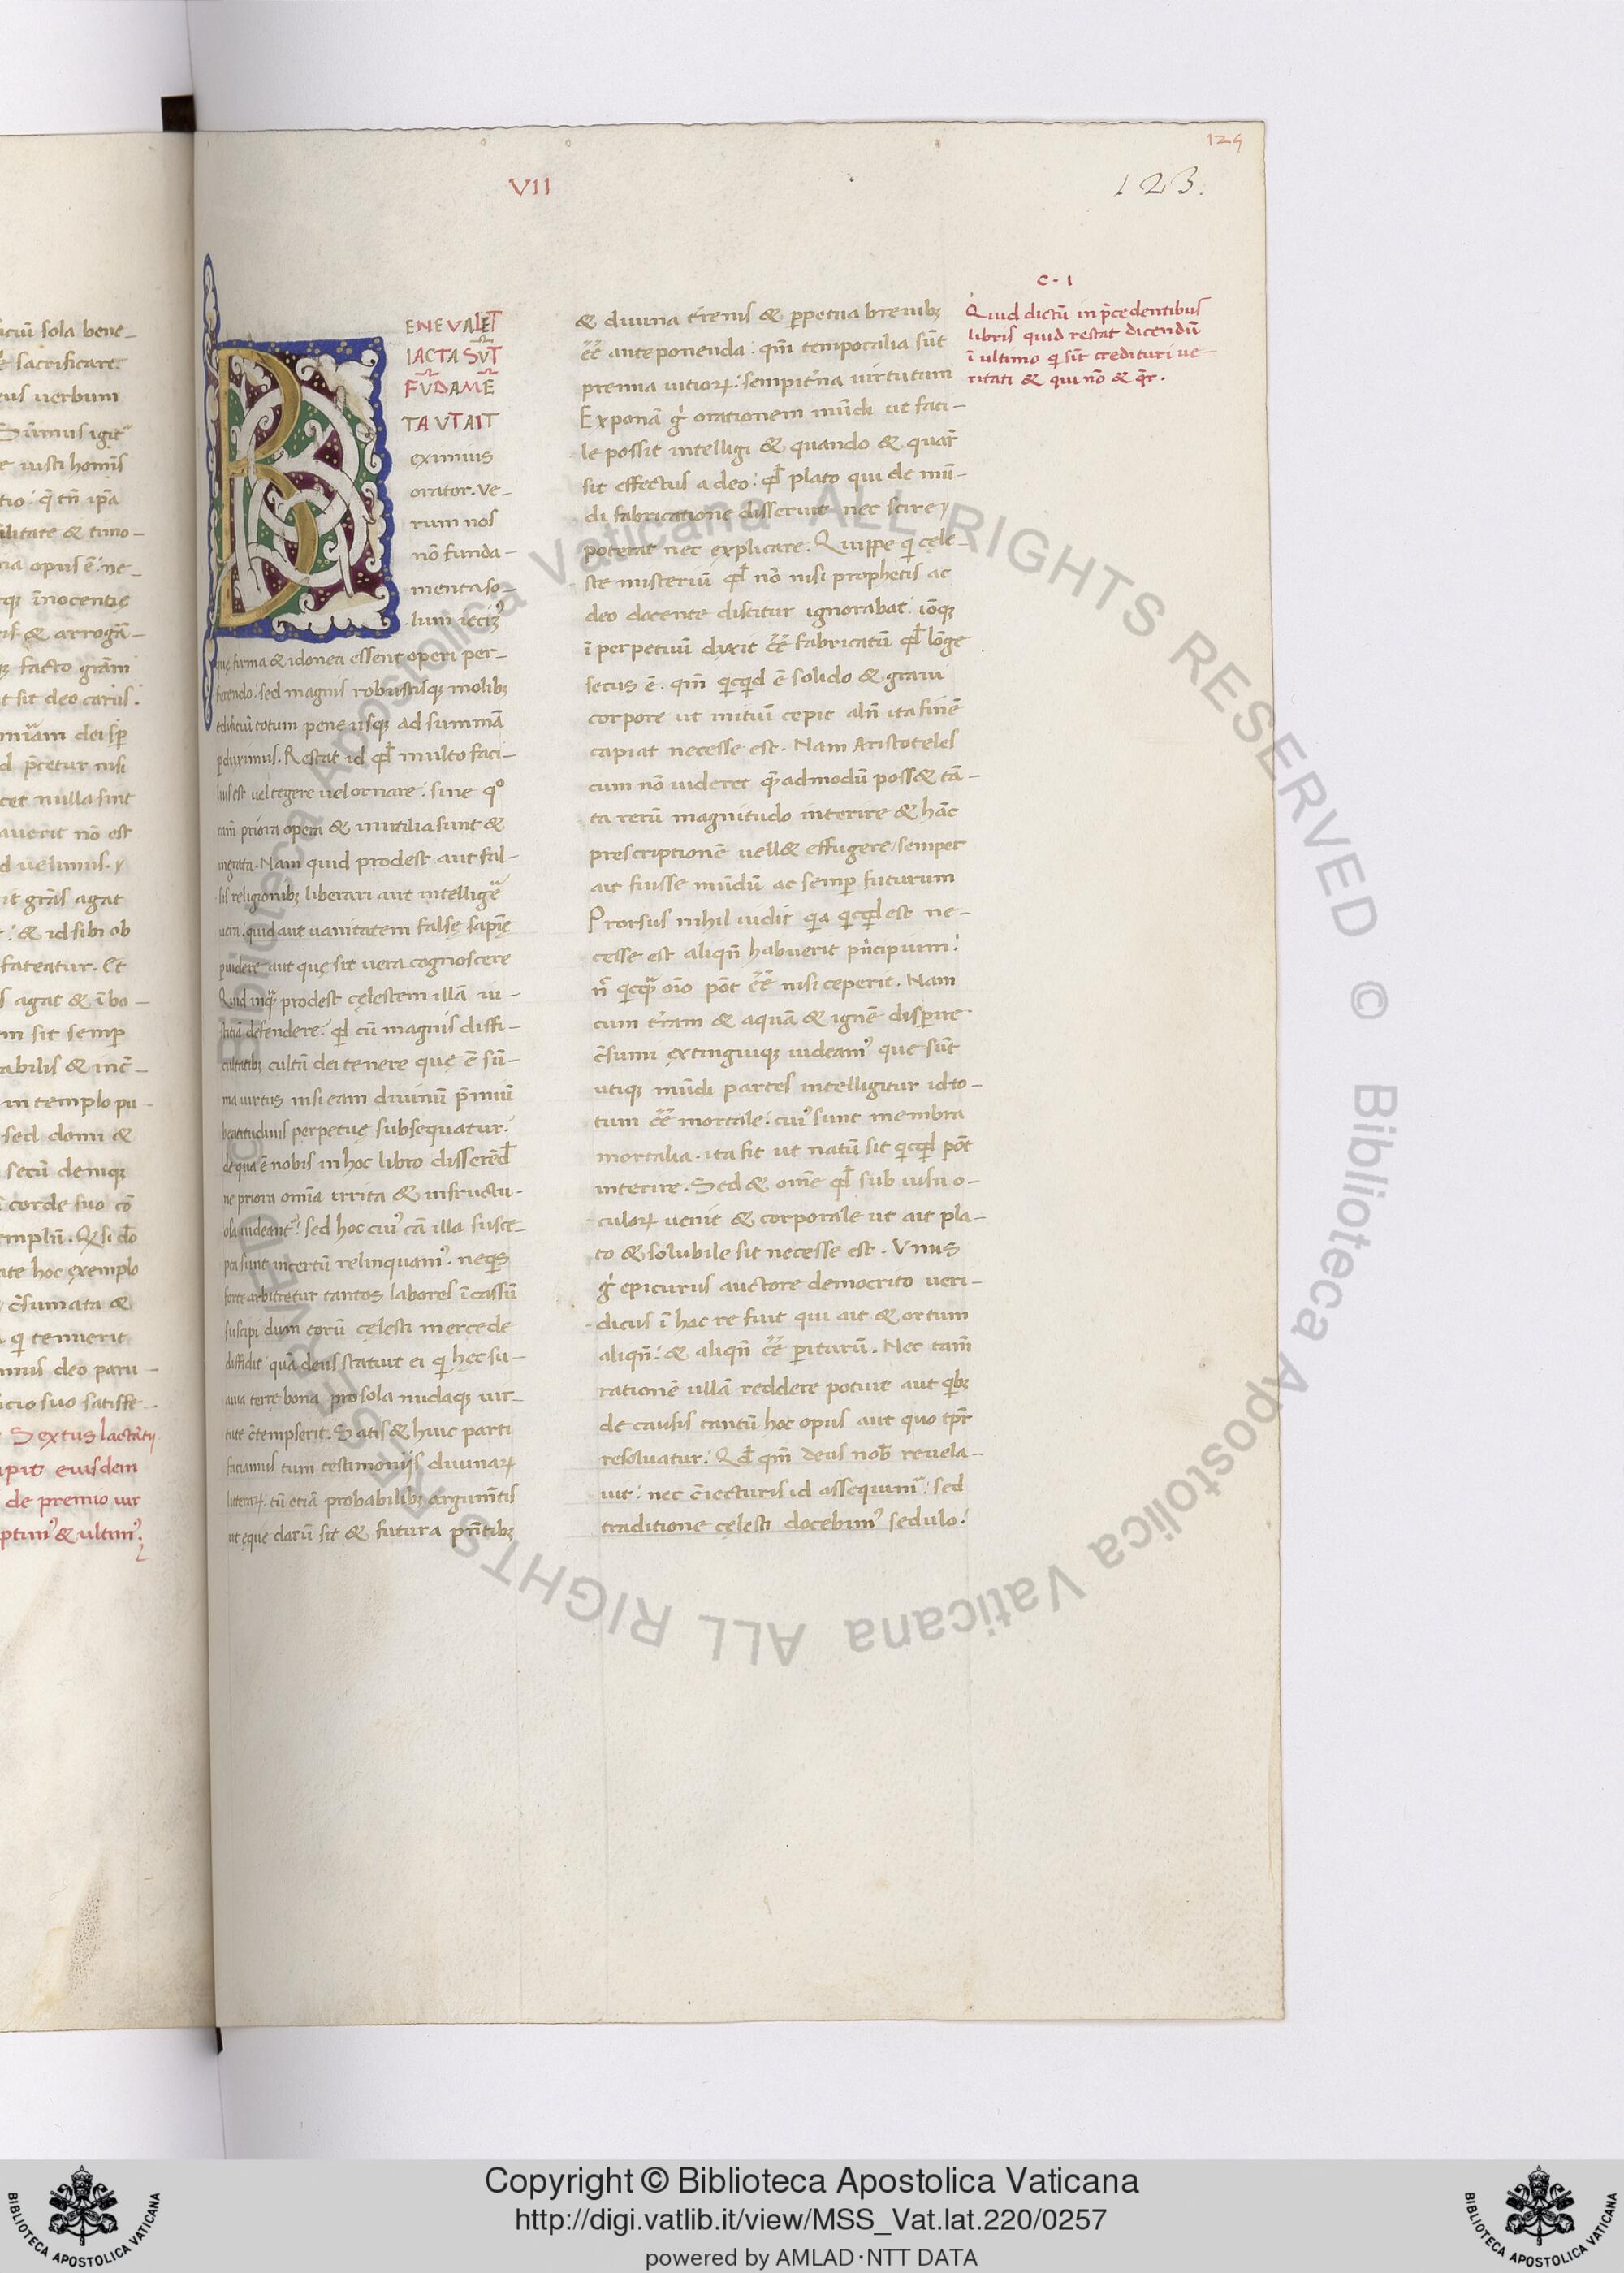 VII
124
123.
iciũ sola bene-
sacrificare.
eus uerbum
Sũmus igit᷑
iusti homĩs
ilitate & timo-
opus ẽ. ne-
q; ĩnocentię
& arrogã-
facto grãm
sit deo carus.
dei sp̱
p̃cetur nisi
cet nulla sint
auerit nõ est
uelimus.
grãs agat
& id sibi ob
fateatur. Et
agat & ĩ bo-
m sit semp̱
abilis & inc̃-
in templo pa-
sed domi &
secũ deniq;
corde suo cõ
emplũ. Q̃ si do
hoc exemplo
c̃sumata &
q̇ tenuerit
mus deo paru-
icio suo satisfe-
Sextus lactãtij
ipit eiusdem
de premio uir
ptim᷒ & ultim᷒.
B
ENE VALET
IACTA SV̄T
FV̄DAMĒ
TA VT AIT
eximius
orator. ve-
rum nos
nõ funda-
menta so-
lum iecim᷒
quę firma & idonea essent operi per-
ferendo. sed magnis robustisq; molib;
edificiũ totum pene usq; ad summã
ꝑduximus. Restat id qd̃ multo faci-
lius est uel tegere uel ornare. sine qº
tam̃ priora opera & inutilia sunt &
ingrata. Nam quid prodest aut fal-
sis religionib; liberari aut intelligẽ
uera. quid aut uanitatem falsę sapię
puidere aut quę sit uera cognoscere
Quid inq̃ prodest cęlestem illã iu-
stitiã defendere. qd̃ cũ magnis diffi-
cultatib; cultũ dei tenere que ẽ sũ-
ma uirtus nisi eam diuinũ p̃miũ
beatitudinis perpetuę subsequatur.
de qua ẽ nobis in hoc libro disserẽd̃
ne priora om̃ia irrita & infructu-
osa uideant᷑. sed hoc cui᷒ cã illa susce-
pta sunt incertũ relinquam᷒. neq̇s
forte arbitretur tantos labores ĩcassũ
suscipi dum eorũ cęlesti mercede
diffidit. quã deus statuit ei q̇ hec su-
auia terre bona pro sola nudaq; uir-
tute c̃tempserit. Satis & huic parti
faciamus tum testimonijs diuinaꝝ
litteraꝝ. tũ etiã probabilib; argum̃tis
ut eque clarũ sit & futura pñtib;
& diuina tr̃enis & ꝑpetua breuib;
ẽẽ anteponenda. qm̃ temporalia sũt
premia uitioꝝ. sempitr̃na uirtutum
Exponã g̊ orationem mũdi ut faci-
le possit intelligi & quando & quar̃
sit effectus a deo. qd̃ plato qui de mũ-
di fabricatione disseruit nec scire
poterat nec explicare. Quippe q̇ cęle-
ste misteriũ qd̃ nõ nisi prophetis ac
deo docente discitur ignorabat. iõq;
ĩ perpetuũ dixit ẽẽ fabricatũ qd̃ lõge
secus ẽ. qm̃ q̇cq̇d ẽ solido & graui
corpore ut initiũ cepit aliñ ita finẽ
capiat necesse est. Nam Aristoteles
cum nõ uideret quẽadmodũ poss& tã-
ta rerũ magnitudo interire & hãc
prescriptionẽ uell& effugere / semper
ait fuisse mũdũ ac semp̱ futurum
Prorsus nihil uidit q̇a q̇cq̇d est ne-
cesse est aliqñ habuerit pñcipium.
ñ q̇cq̃ oĩo põt ẽẽ nisi ceperit. Nam
cum tr̃am & aquã & ignẽ disperire
c̃sumi extinguiq; uideam᷒ que sũt
utiq; mũdi partes intelligitur id to-
tum ẽẽ mortale. cui᷒ sunt membra
mortalia. ita fit ut natũ sit q̇cq̇d põt
interire. Sed & om̃e qd̃ sub uisu o-
culoꝝ uenit & corporale ut ait pla-
to & solubile sit necesse est. Vnus
g̊ epicurus auctore democrito ueri-
dicus ĩ hac re fuit qui ait & ortum
aliqñ. & aliqñ ẽẽ ꝑiturũ. Nec tam̃
rationẽ ullã reddere potuit aut q̇b;
de causis tantũ hoc opus aut quo tp̃r
resoluatur. Qd̃ qm̃ deus nob᷒ reuela-
uit. nec c̃iecturis id assequim᷑. sed
traditione cęlesti docebim᷒ sedulo.
C. I
Quid dictũ in p̃cedentibus
libris quid restat dicendũ
ĩ ultimo q̇ sĩt credituri ue-
ritati & qui nõ & q̃r.
Copyright © Biblioteca Apostolica Vaticana
http://digi.vatlib.it/view/MSS_Vat.lat.220/0257
powered by AMLAD·NTT DATA
BIBLIOTECA APOSTOLICA VATICANA
BIBLIOTECA APOSTOLICA VATICANA
© Biblioteca Apostolica Vaticana ALL RIGHTS RESERVED © Biblioteca Apostolica Vaticana ALL RIGHTS RESERVED